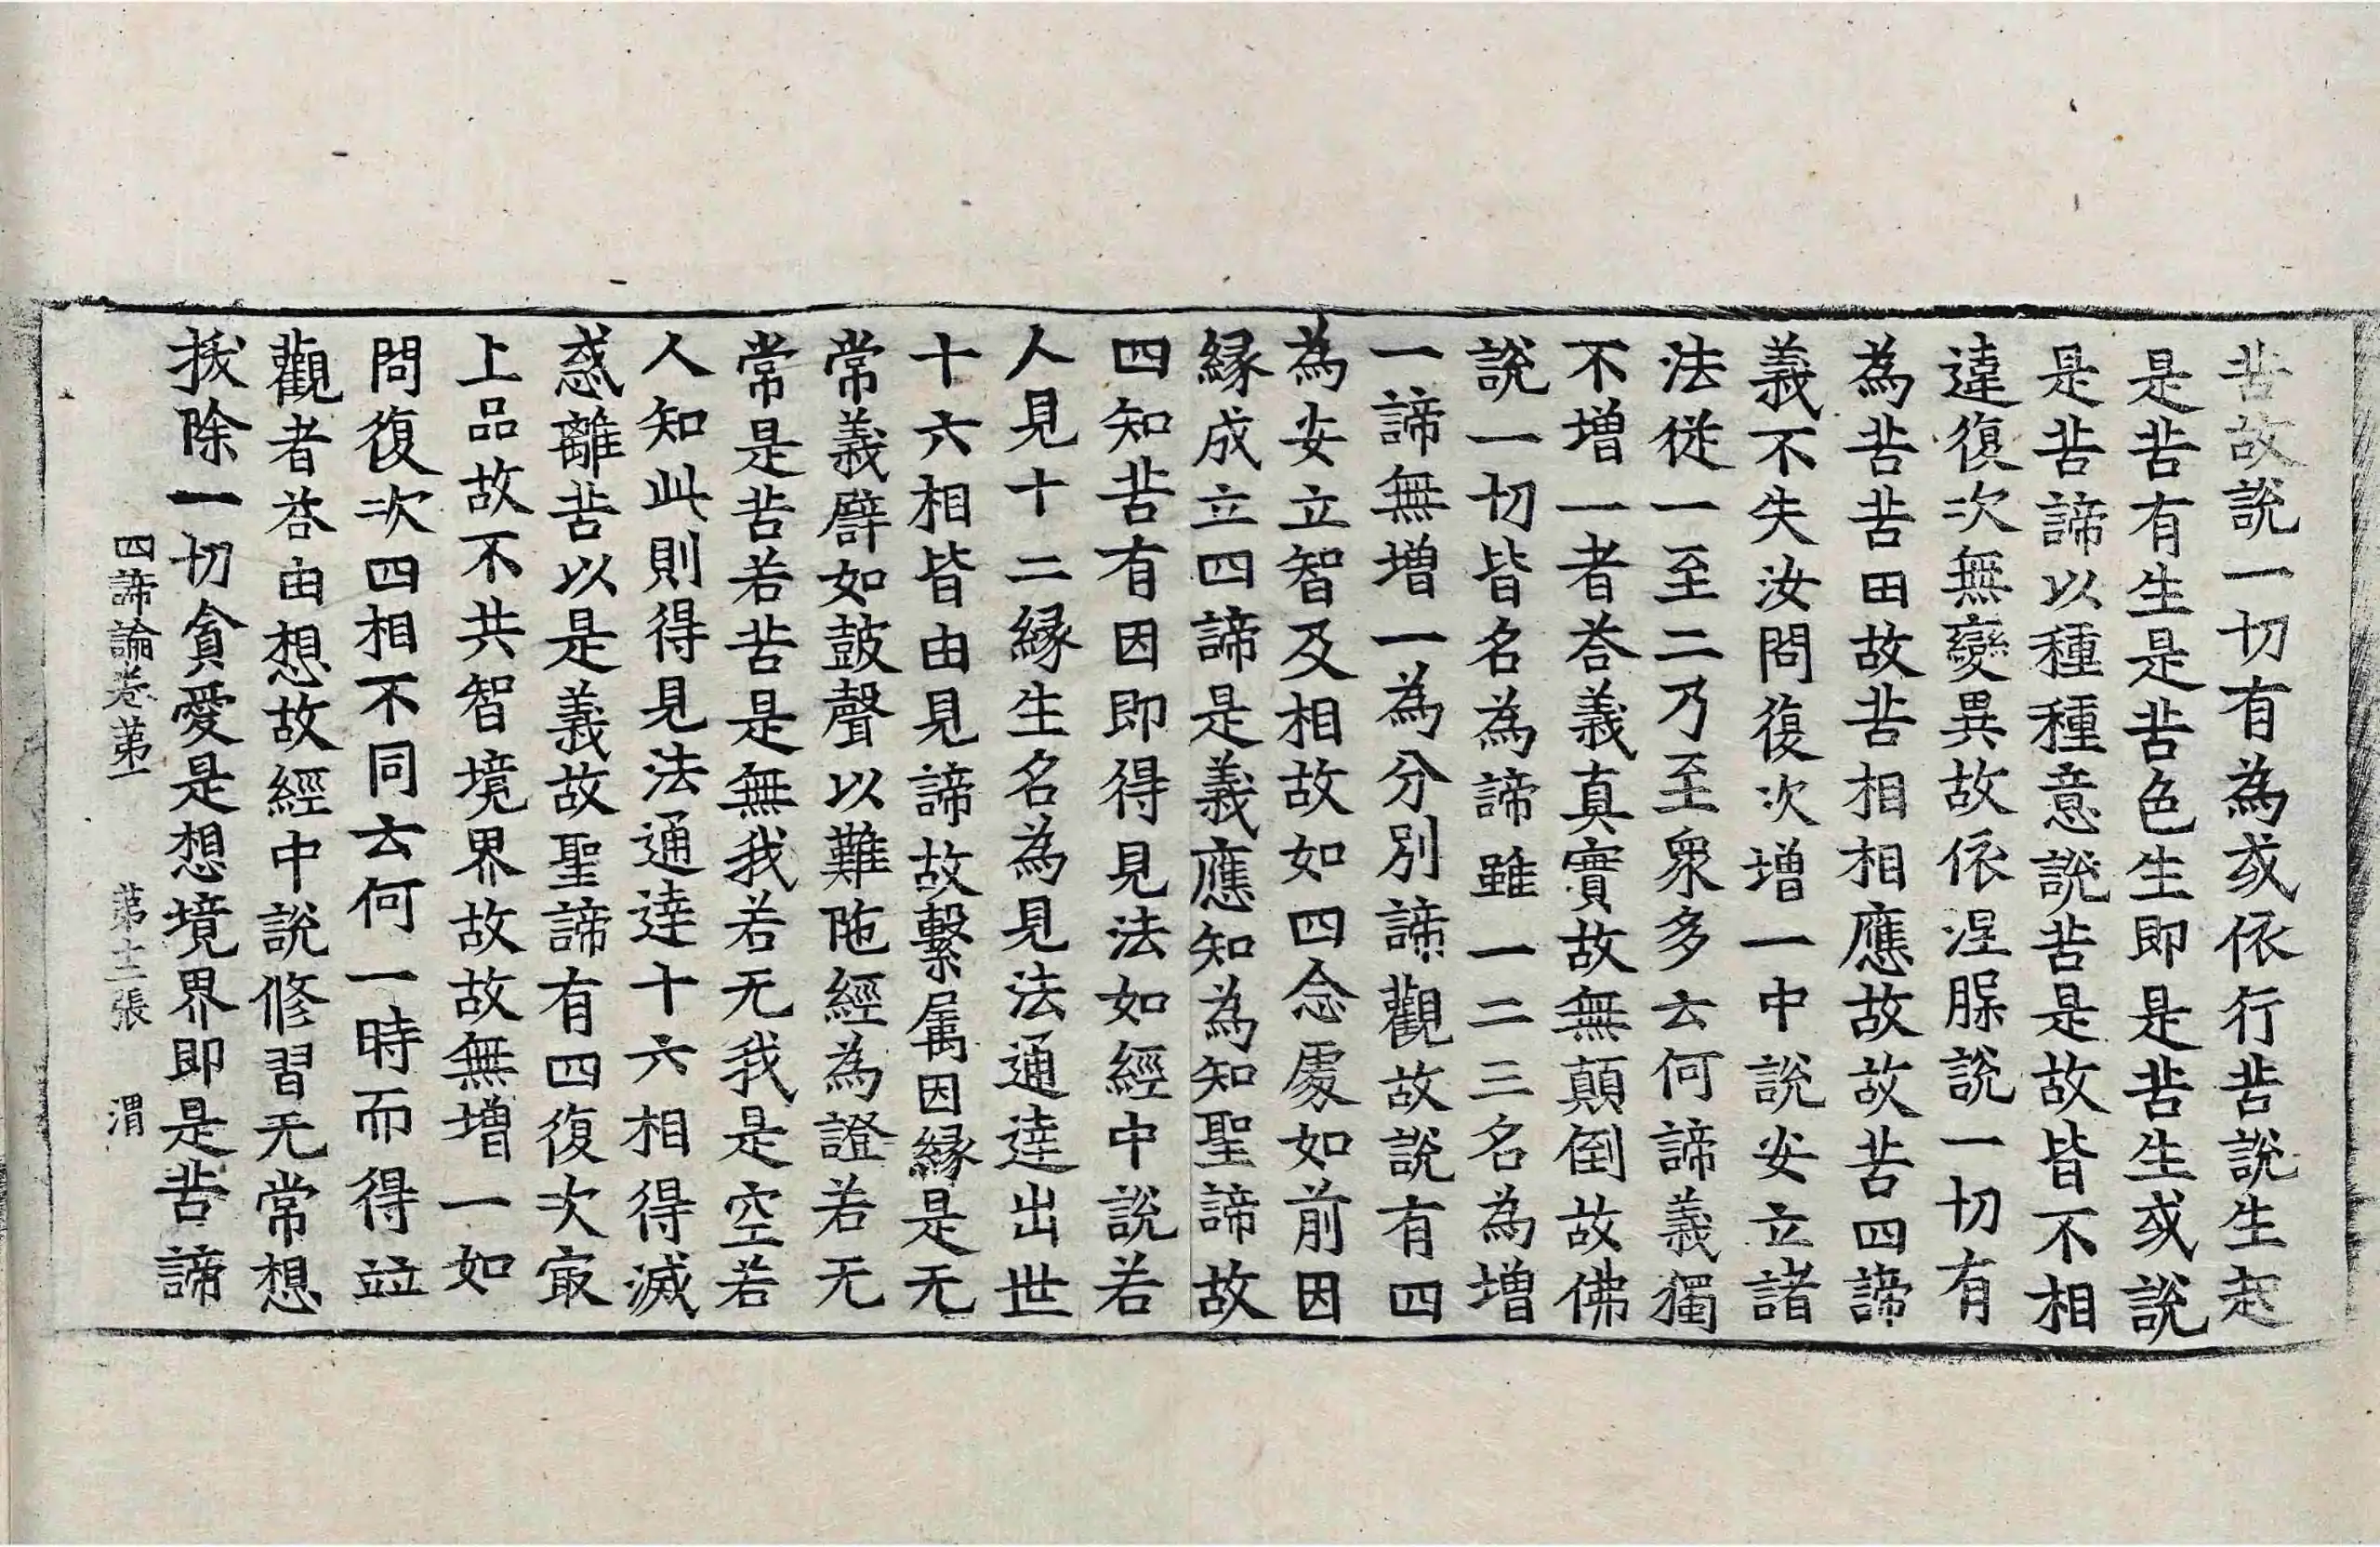 苦故說一切有為或依行苦說生起
是苦有生是苦色生即是苦生或說
是苦諦以種種意說苦是故皆不相
違復次無變異故依涅槃說一切有
為苦苦田故苦相相應故故苦四諦
義不失汝問復次增一中說安立諸
法從一至二乃至衆多云何諦義獨
不增一者荅義真實故無顛倒故佛
說一切皆名為諦雖一二三名為增
一諦無增一為分別諦觀故說有四
為安立智及相故如四念處如前因
緣成立四諦是義應知為知聖諦故
四知苦有因即得見法如經中說若
人見十二緣生名為見法通達出世
十六相皆由見諦故繫属因緣是无
常義譬如鼓聲以難陁經為證若无
常是苦若苦是無我若无我是空若
人知此則得見法通達十六相得滅
惑離苦以是義故聖諦有四復次㝡
上品故不共智境界故故無增一如
問復次四相不同云何一時而得並
觀者荅由想故經中說修習无常想
拔除一切貪愛是想境界即是苦諦
四諦論卷苐一　苐十二張　渭